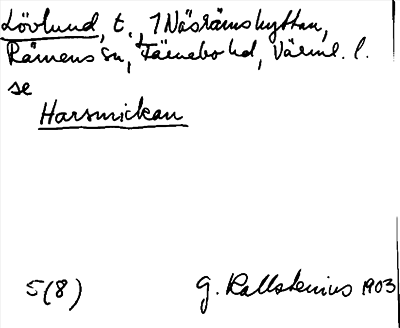 Lövlund, t., 7 Näsrämshyttan,
Rämens sn, Färnebo hd, Värml. l.
se
Harsmickan
5(8) G. Kallstenius 1903